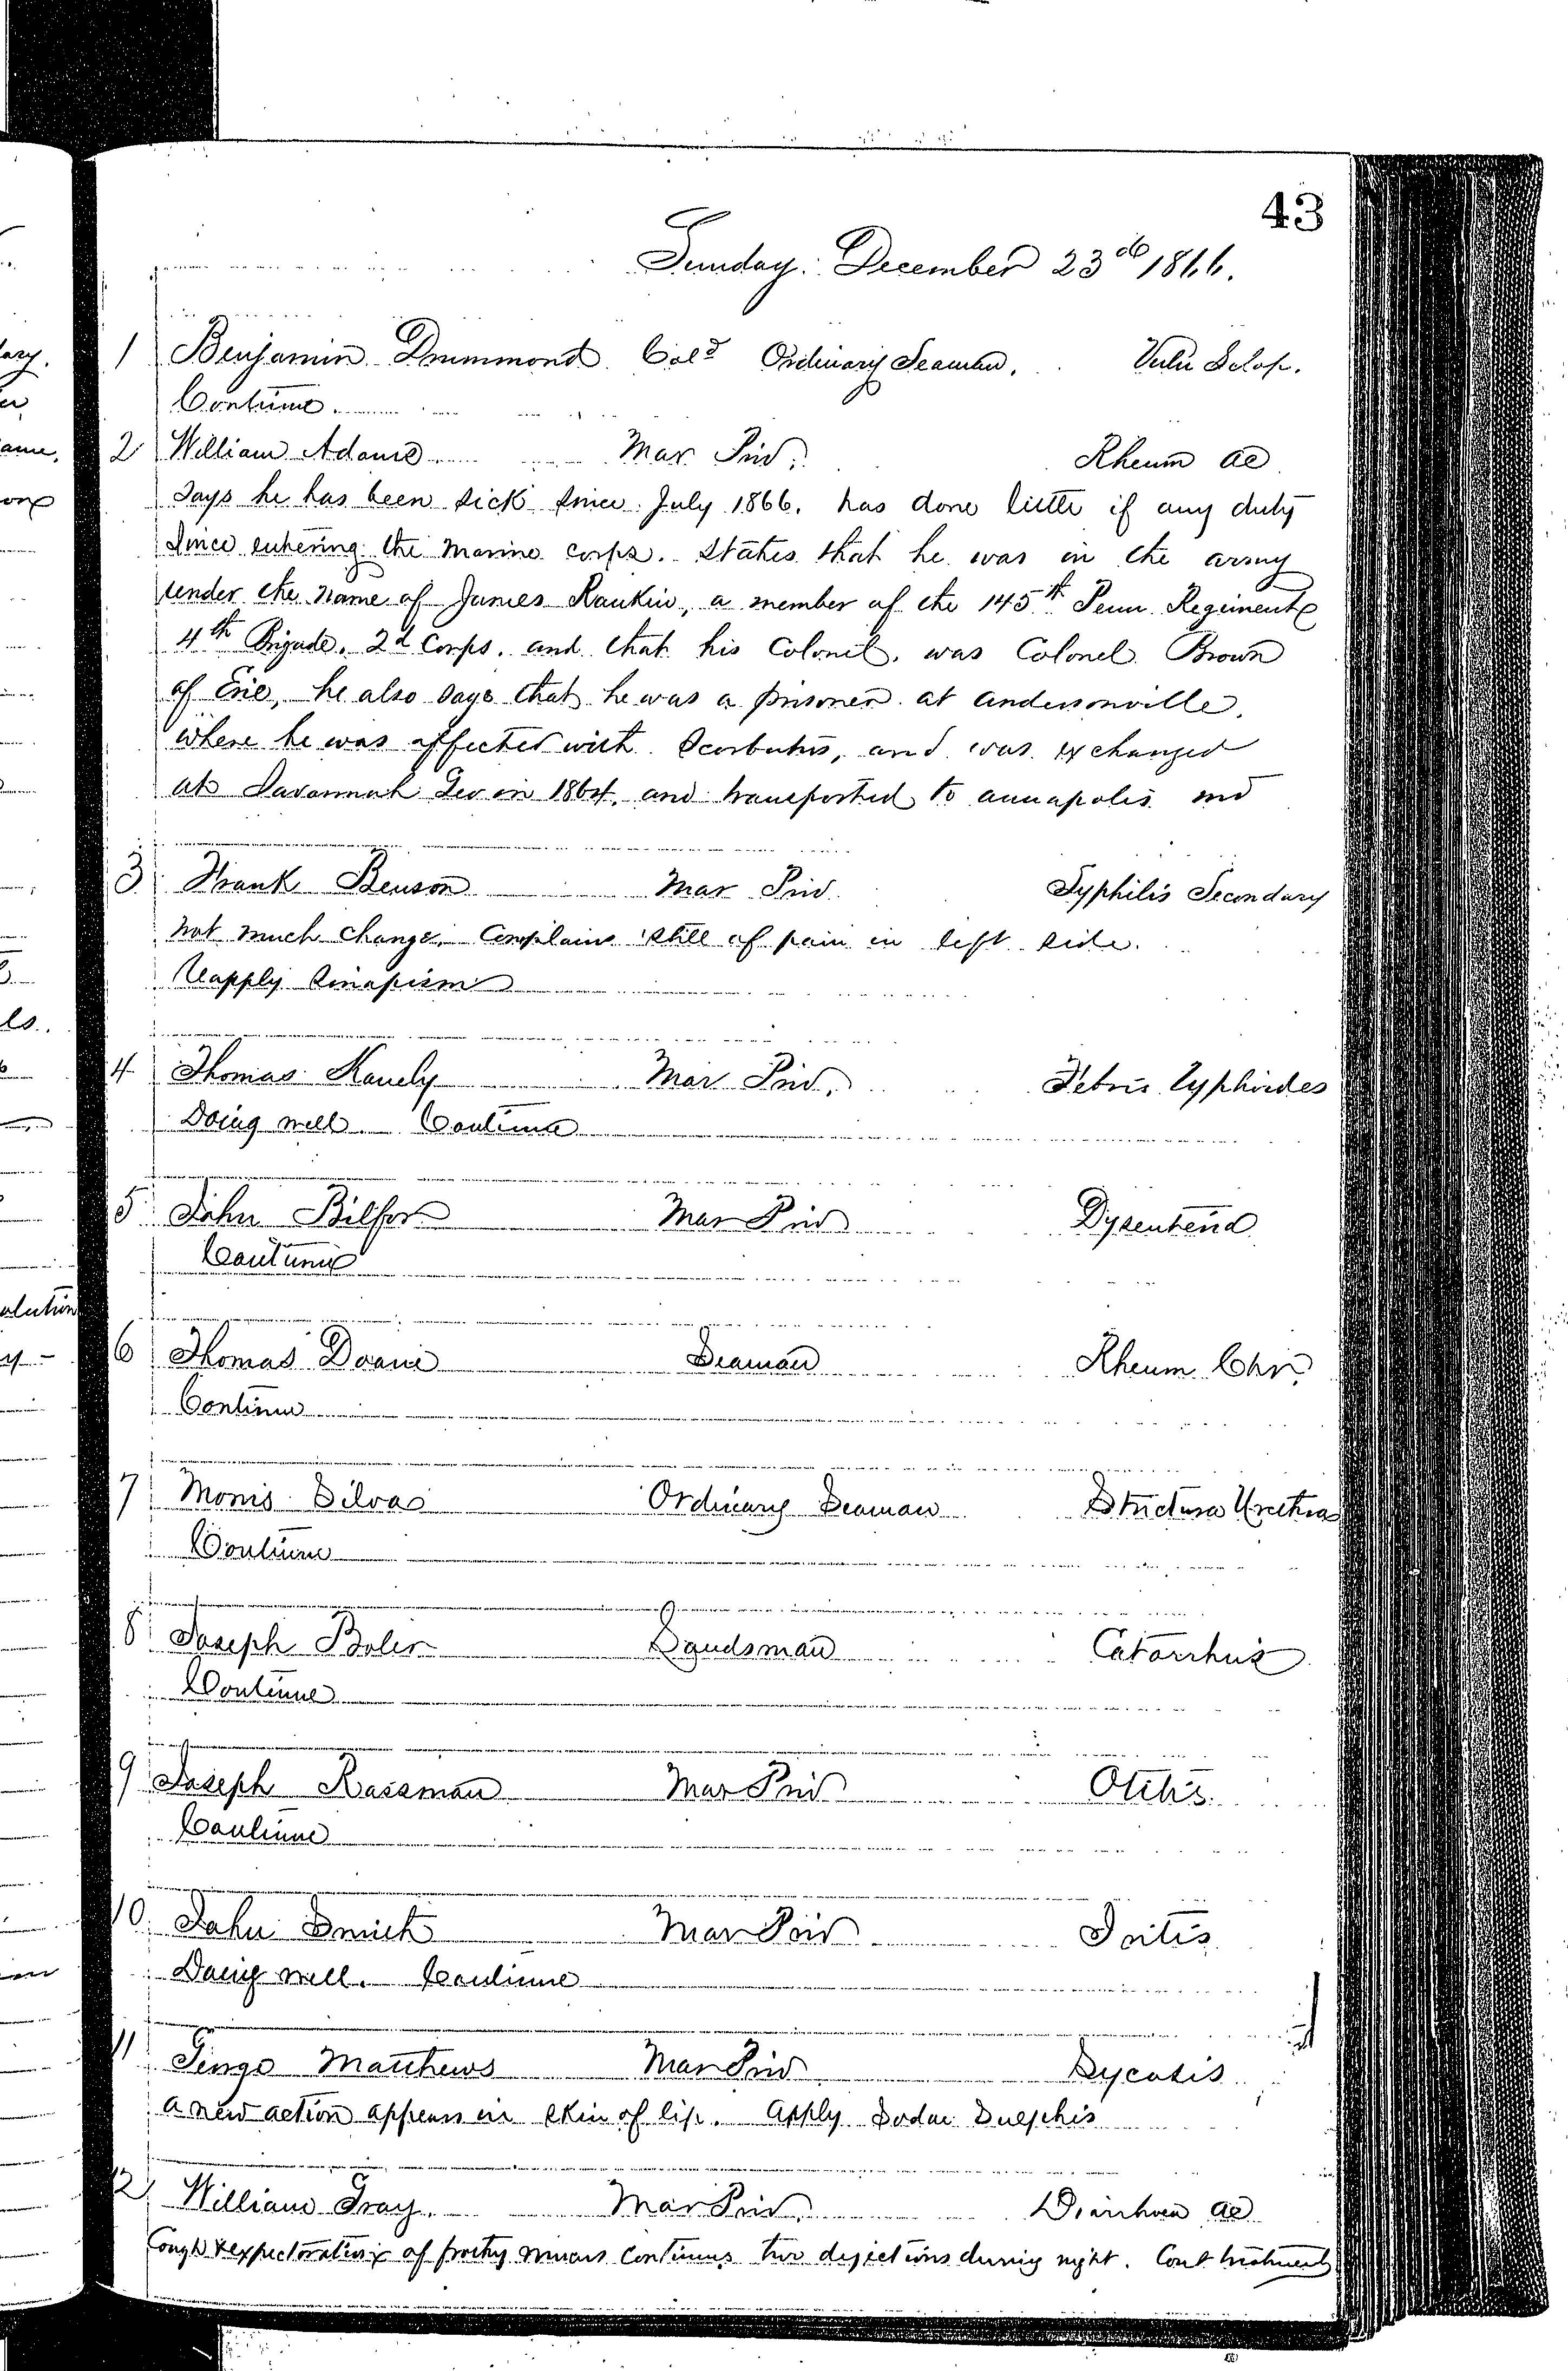 43
Sunday. December 23d 1866.
1 Benjamin Drummond Cold Ordinary Seaman. Vuln Sclop.
Continue.
2 William Adams Mar Priv. Rheum ac
Says he has been sick since July 1866. has done little if any duty
since entering the Marine corps. States that he was in the army
under the name of James Rankin, a member of the 145th Penn Regiment
4th Brigade. 2d Corps. and that his Colonel. was Colonel Brown
of Erie, he also says that he was a prisoner at andersonville.
where he was affected with Scorbutus, and was exchanged
at Savannah Geo in 1864. and transported to annapolis md
3 Frank Benson Mar Priv Syphilis Secondary
not much change. Complains still of pain in left side.
Reapply Sinapism
4 Thomas Kanely Mar Priv. Febris Typhoides
Doing well. Continue
5 John Bilfor Mar Priv Dysenteria
Continue
6 Thomas Doane Seaman Rheum Chr.
Continue
7 Morris Silvas Ordinary Seaman Strictura Urethra
Continue
8 Joseph Boler Landsman Catarrhus
Continue
9 Joseph Rassman Mar Priv Otitis
Continue
10 John Smith Mar Priv Iritis
Doing well. Continue
11 Matthews Mar Priv Sycosis
a new action appears in skin of lip. Apply Sodae Sulphis
12 William Gray. Mar Priv. Diarrhoea ac
Cough & expectoration of frothy mucus continues two dejections during night. Cont treatment